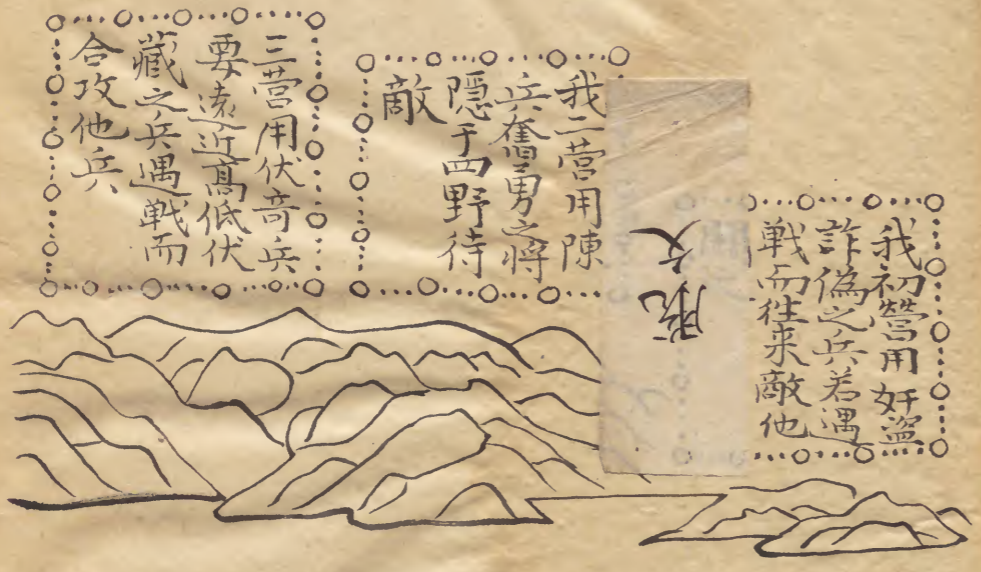 我初營用奸盜
詐偽之兵若遇
戰而徃来敵他
我二营用陳
兵奮勇之將
隱于四野待
敵
三营用伏奇兵
要遠近髙低伏
藏之兵遇戰而
合攻他兵